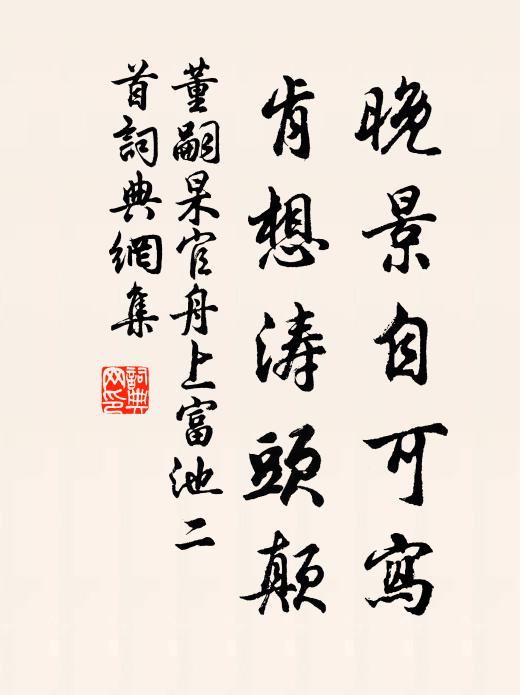 晚景自可寫
肯想涛頭顛
董嗣杲官舟上富池二
首詞典網集
詞典
网印